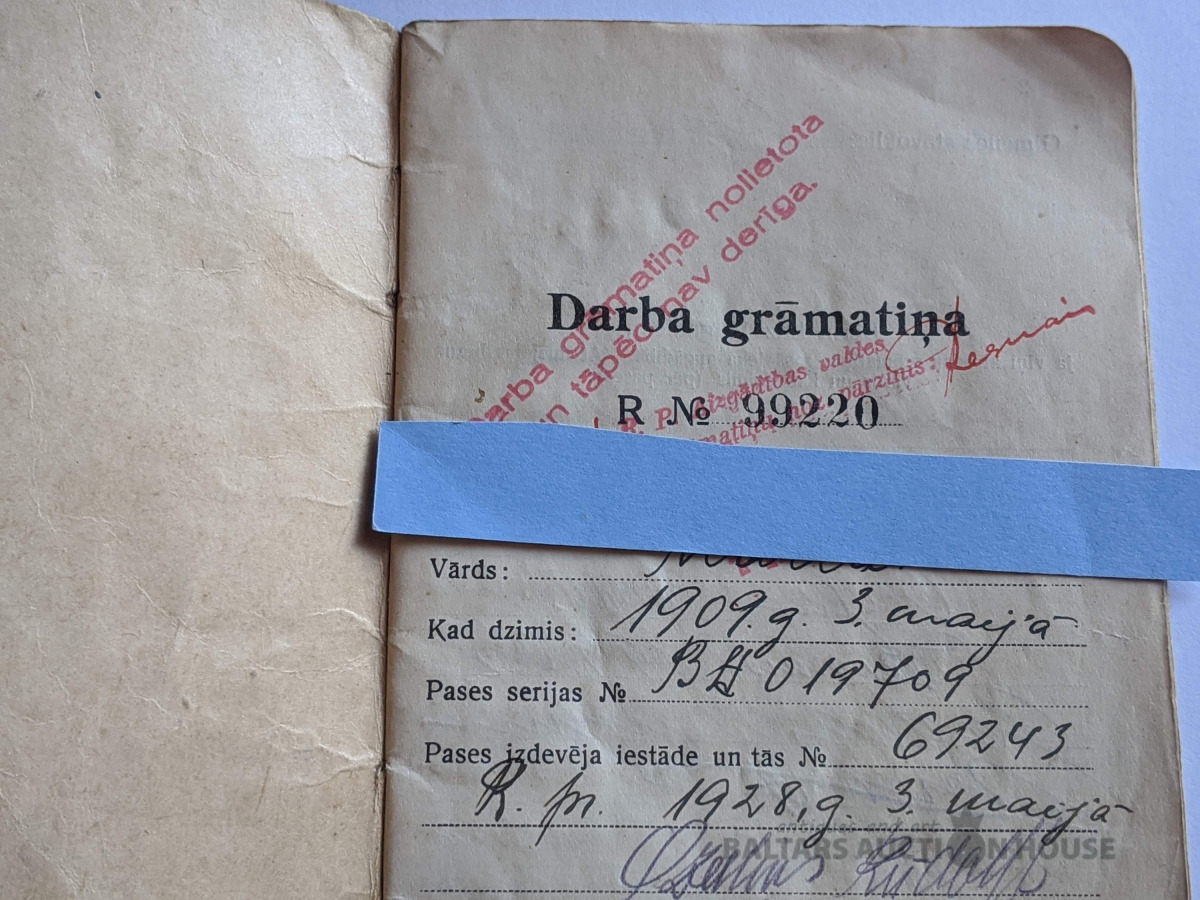 Darba grāmatiņa nolietota
un tāpēc nav derīga.
Darba grāmatiņa
R № 99220
R. P. Aizgādības valdes
pārzinis:
Vārds:
Kad dzimis: 1909. g. 3. maijā
Pases serijas № BH 019709
Pases izdevēja iestāde un tās № 69243
R. pr. 1928. g. 3. maijā
antiques and art
BALTARS AUCTION HOUSE